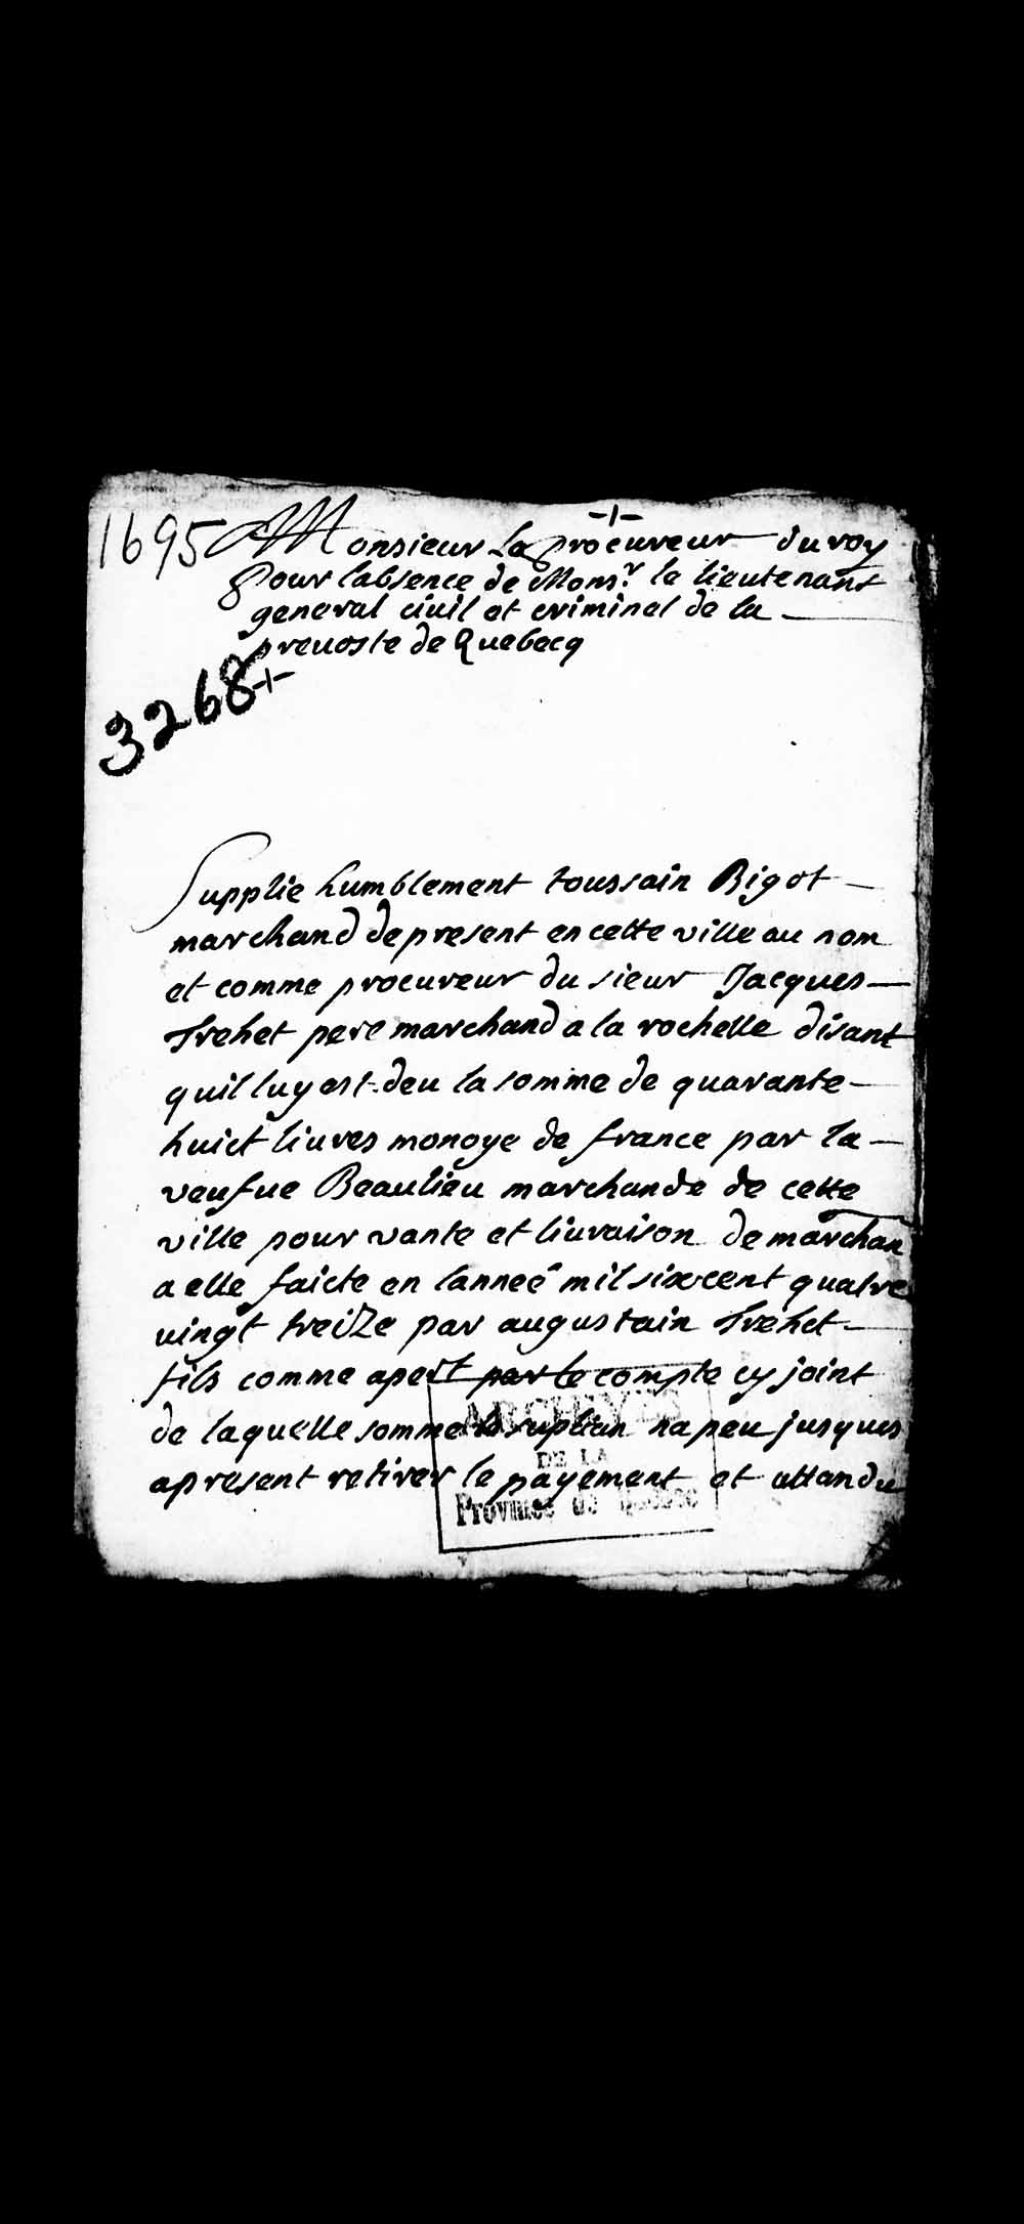 1695 Monsieur Le procureur du roy
pour labsence de Monsr. le lieutenant
general ciuil et criminel de la
preuoste de Quebecq
3268
Supplie humblement toussain Bigot
marchand de present en cette ville au nom
et comme procureur du sieur Jacques
Trehet pere marchand a la rochelle disant
quil luy est deu la somme de quarante
huict liures monoye de france par la
veufue Beaulieu marchande de cette
ville pour vante et liuraison de marchan
a elle faicte en lanneé mil sixcent quatre
uingt treize par augustain Trehet
fils comme apert par le compte cy joint
de laquelle somme le suplian na peu jusques
apresent retirer le payement et attandu
ARCHIVES
DE LA
Province de Québec